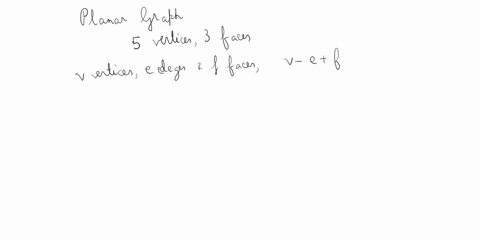 Planar Graph
5 vertices, 3 faces
v vertices, e edges & f faces, v - e + f